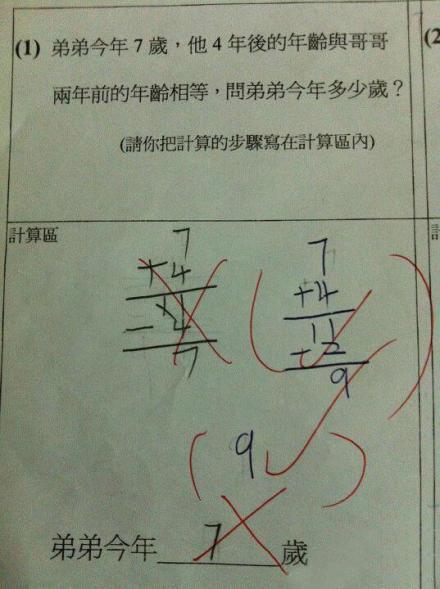 (1) 弟弟今年 7 歲，他 4 年後的年齡與哥哥
兩年前的年齡相等，問弟弟今年多少歲？
(請你把計算的步驟寫在計算區內)
(2
計算區
7
+4
11
-4
7
7
+4
11
2
9
(9✓)
弟弟今年 7 歲